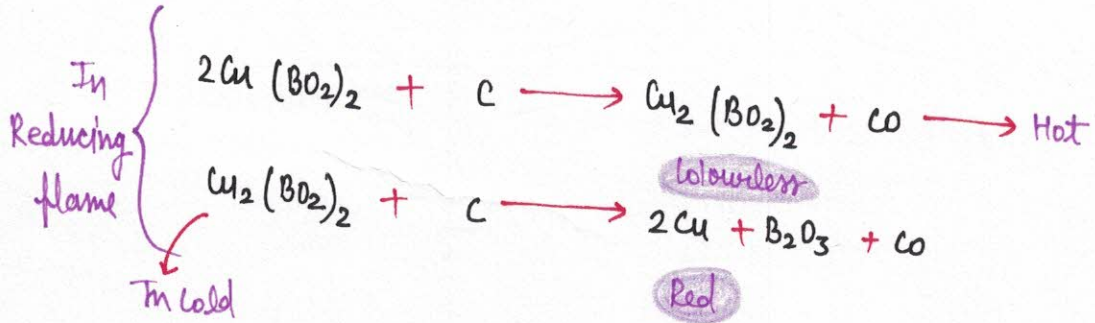 In Reducing flame
2Cu (BO₂)₂ + C ⟶ Cu₂ (BO₂)₂ + CO ⟶ Hot
Colourless
Cu₂ (BO₂)₂ + C ⟶ 2Cu + B₂O₃ + CO
In cold
Red